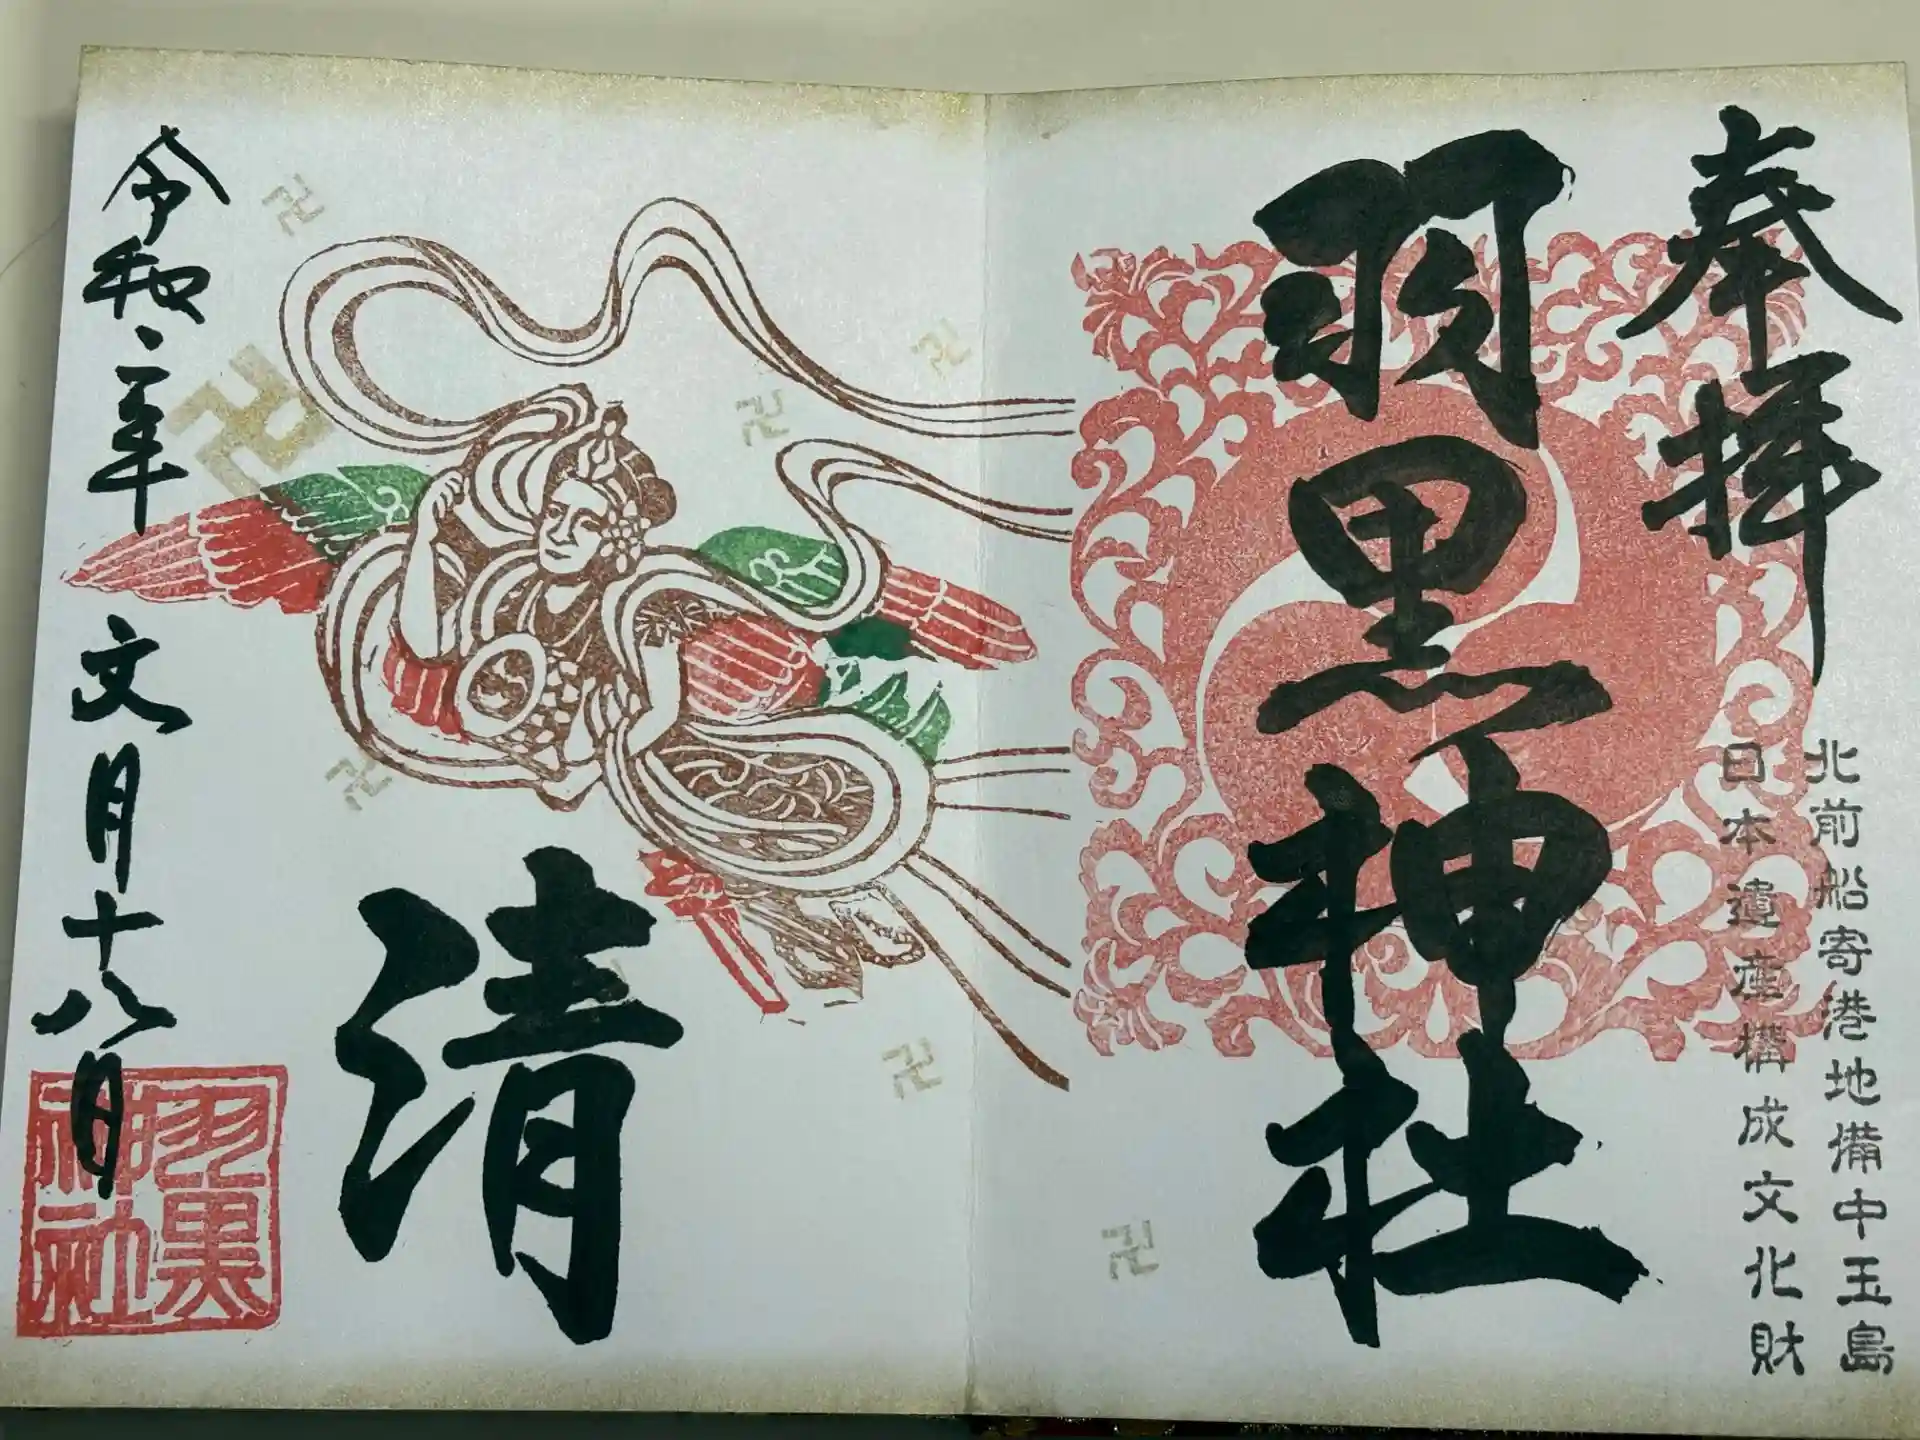 奉拝
北前船寄港地備中玉島
日本遺産構成文化財
羽黒神社
清
令和二年
文月十八日
羽黒
神社